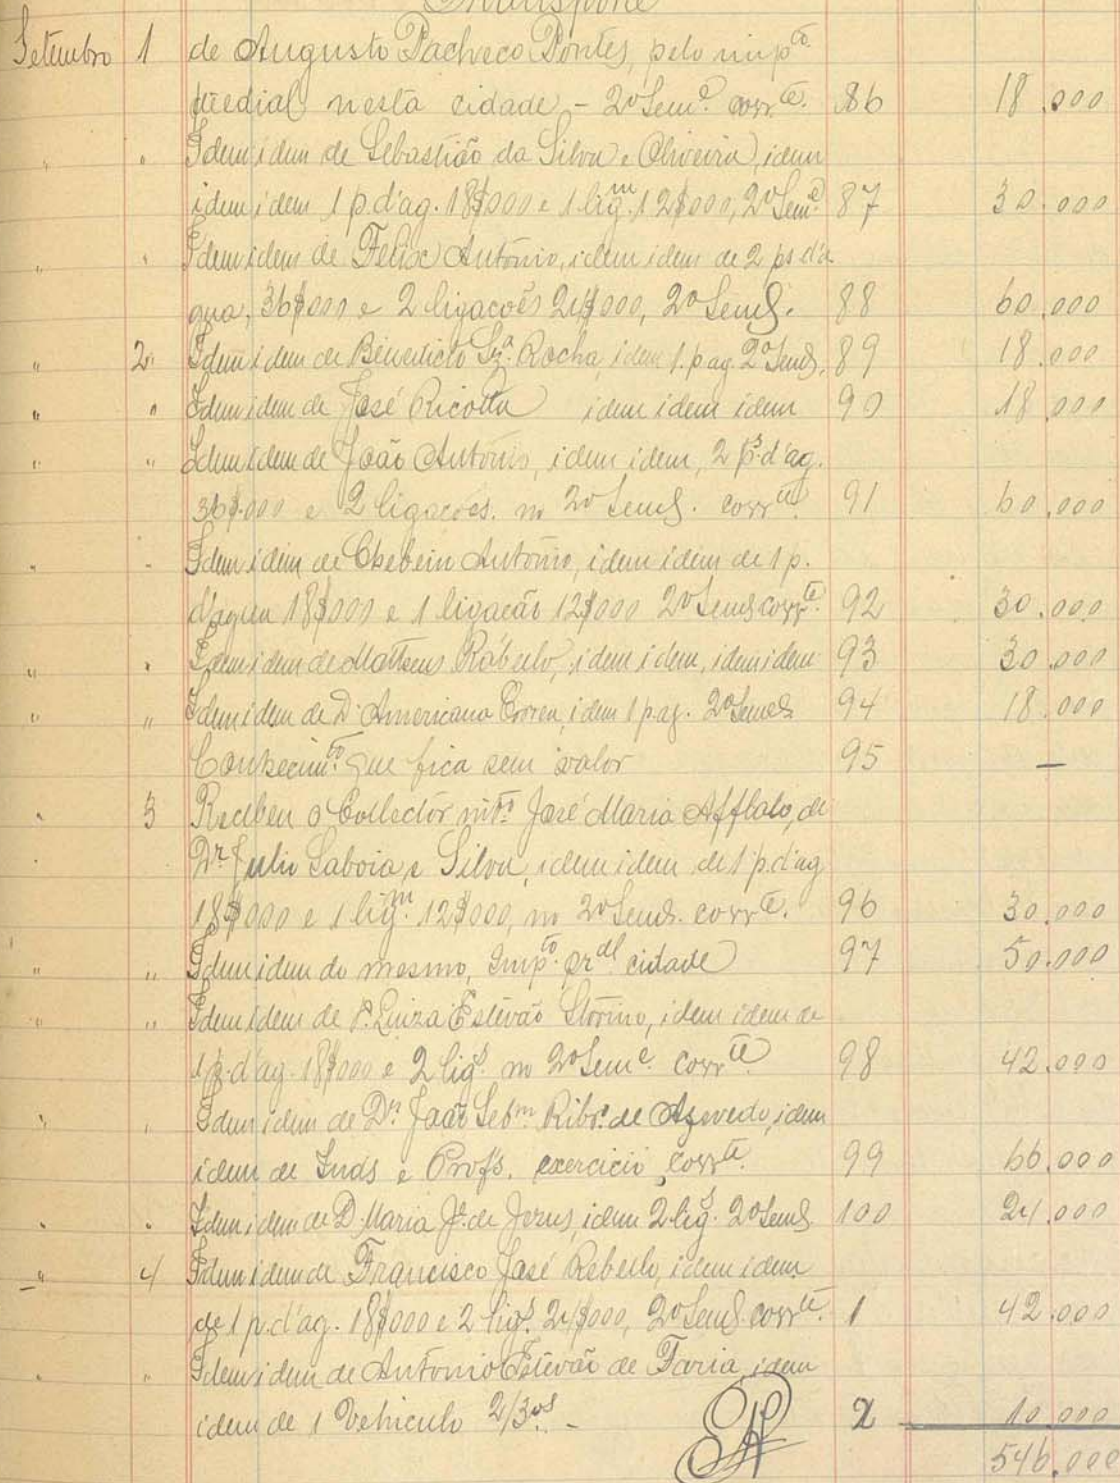 Transporte
Setembro 1 de Augusto Pacheco Pontes, pelo impto
predial nesta cidade - 2º Seme. corrte. 86 18.000
" " Idem idem de Sebastião da Silva e Oliveira, idem
idem idem 1 p. d'ag. 18$000 e 1 ligm. 12$000, 2º Seme. 87 30.000
" " Idem idem de Felioc Antonio, idem idem de 2 ps d'a
gua, 36$000 e 2 ligacoẽs 24$000, 2º Seme. 88 60.000
" 2 Idem idem de Benedicto Sza. Rocha, idem 1. p ag. 2º Seme. 89 18.000
" " Idem idem de José Ricotta idem idem idem 90 18.000
" " Idem idem de João Antonio, idem idem, 2 ps. d'ag.
36$000 e 2 ligacoẽs. no 2º Seme. corrte. 91 60.000
" " Idem idem de Chebein Antonio, idem idem de 1 p.
d'agua 18$000 e 1 ligacão 12$000 2º Seme corrte. 92 30.000
" " Idem idem de Mattheus Rabello, idem idem, idem idem 93 30.000
" " Idem idem de D. Americana idem 1 p. ag. 2º Seme 94 18.000
Conhecimto. que fica sem valor 95 —
" 3 Recebeu o Collector into. José Maria Afflalo, de
Dr. Julio Saboia e Silva, idem idem de 1 p. d'ag
18$000 e 1 ligm. 12$000, no 2º Seme. corrte. 96 30.000
" " Idem idem do mesmo, Impto. prdl cidade 97 50.000
" " Idem idem de D. Luiza Estevão Storino, idem idem de
1 p. d'ag. 18$000 e 2 ligs. no 2º Seme. corrte. 98 42.000
" " Idem idem de Dr. João Sebm. Ribro. de Azevedo, idem
idem de Inds e Profs. exercicio corrte. 99 66.000
" " Idem idem de D. Maria Je. de Jesus, idem 2 ligs. 2º Seme. 100 24.000
" 4 Idem idem de Francisco José Rebello, idem idem
de 1 p. d'ag. 18$000 e 2 ligs. 24$000, 2º Seme. corrte. 1 42.000
" " Idem idem de Antonio Estevão de Faria, idem
idem de 1 Vehiculo 2/3os. - 2 10.000
546.000